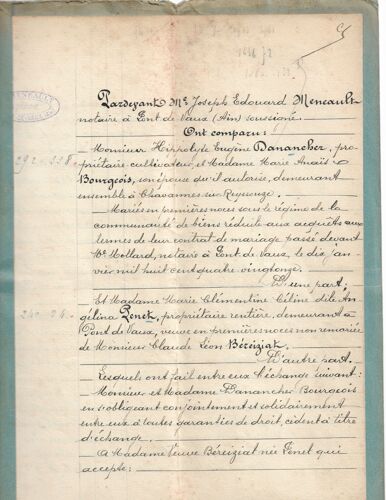 Pardevant Me Joseph Edouard Meneault
notaire à Pont de Vaux (Ain) soussigné.
Ont comparu:
Monsieur Hippolyte Eugène Danancher, pro-
priétaire cultivateur, et Madame Marie Anaïs
292. 338.
Bourgeois, son épouse qu'il autorise, demeurant
ensemble à Chavannes sur Reyssouze.
Mariés en premières noces sous le régime de la
communauté de biens réduite aux acquêts aux
termes de leur contrat de mariage passé devant
Me Mollard, notaire à Pont de Vaux, le dix jan-
vier mil huit cent quatre vingt onze.
D'une part;
Et Madame Marie Clémentine Céline dite An-
gélina Penet, propriétaire rentière, demeurant à
Pont de Vaux, veuve en premières noces non remariée
de Monsieur Claude Léon Béréiziat.
D'autre part.
Lesquels ont fait entre eux l'échange suivant:
Monsieur et Madame Danancher Bourgeois
en s'obligeant conjointement et solidairement
entre eux à toutes garanties de droit, cèdent à titre
d'échange.
A Madame Veuve Béréiziat née Penet qui
accepte: